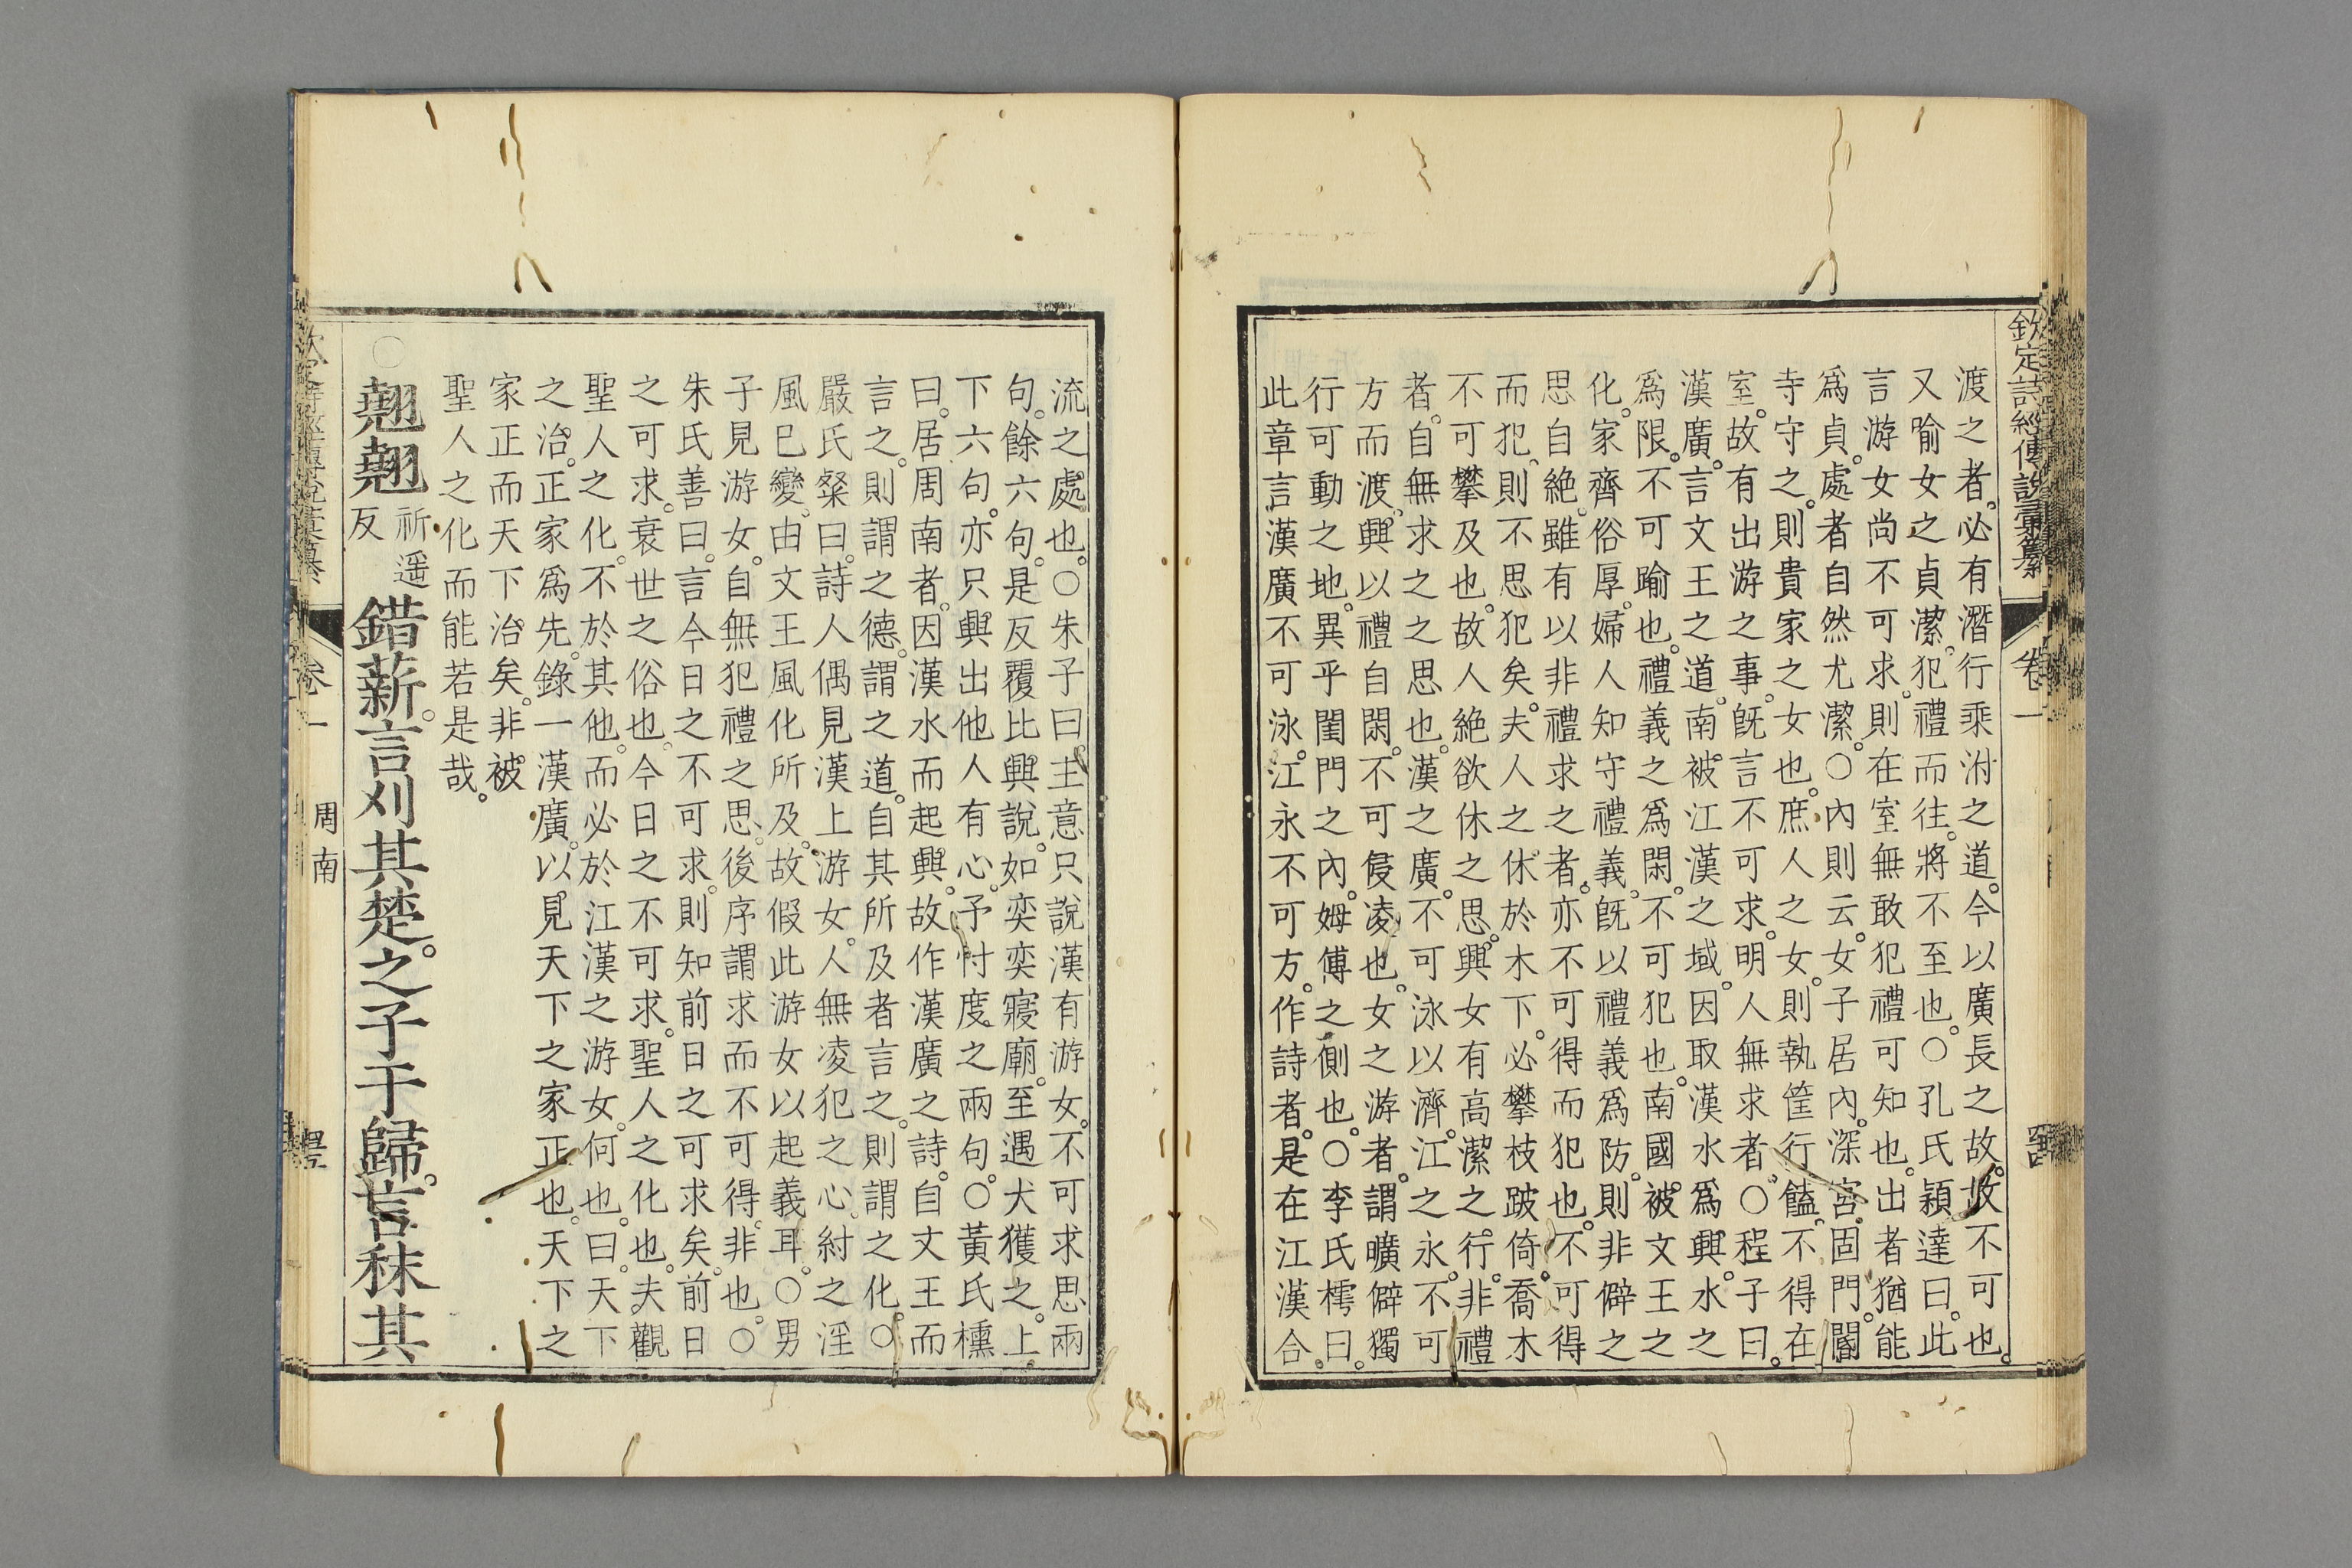 欽定詩經傳說彙纂 卷一
渡之者。必有潛行乘泭之道。今以廣長之故。故不可也。
又喻女之貞潔、犯禮而往。將不至也。○孔氏穎達曰。此
言游女尚不可求。則在室無敢犯禮可知也。出者猶能
爲貞。處者自然尤潔。○內則云。女子居內。深宮。固門。閽
寺守之。則貴家之女也。庶人之女。則執筐行饁。不得在
室。故有出游之事。旣言不可求。明人無求者。○程子曰。
漢廣。言文王之道。南被江漢之域。因取漢水爲興。水之
爲限。不可踰也。禮義之爲閑。不可犯也。南國被文王之
化。家齊俗厚。婦人知守禮義。旣以禮義爲防。則非僻之
思自絕。雖有以非禮求之者。亦不可得而犯也。不可得
而犯、則不思犯矣。夫人之休於木下。必攀枝跛倚。喬木
不可攀及也。故人絕欲休之思。興女有高潔之行。非禮
者。自無求之之思也。漢之廣。不可泳以濟。江之永。不可
方而渡。興以禮自閑。不可侵凌也。女之游者。謂曠僻獨
行可動之地。異乎閨門之內。姆傅之側也。○李氏樗曰。
此章言漢廣不可泳。江永不可方。作詩者。是在江漢合
流之處也。○朱子曰。主意只說漢有游女。不可求思兩
句。餘六句。是反覆比興說。如奕奕寢廟。至遇犬獲之。上
下六句。亦只興出他人有心。予忖度之兩句。○黃氏櫄
曰。居周南者。因漢水而起興。故作漢廣之詩。自文王而
言之。則謂之德。謂之道。自其所及者言之。則謂之化。○
嚴氏粲曰。詩人偶見漢上游女。人無凌犯之心。紂之淫
風已變。由文王風化所及。故假此游女以起義耳。○男
子見游女。自無犯禮之思。後序謂求而不可得。非也。○
朱氏善曰。言今日之不可求。則知前日之可求矣。前日
之可求。衰世之俗也。今日之不可求。聖人之化也。夫觀
聖人之化。不於其他。而必於江漢之游女。何也。曰。天下
之治。正家爲先。錄一漢廣。以見天下之家正也。天下之
家正而天下治矣。非被
聖人之化而能若是哉。
○翹翹祈遥反錯薪。言刈其楚。之子于歸。言秣其
卷一 周南